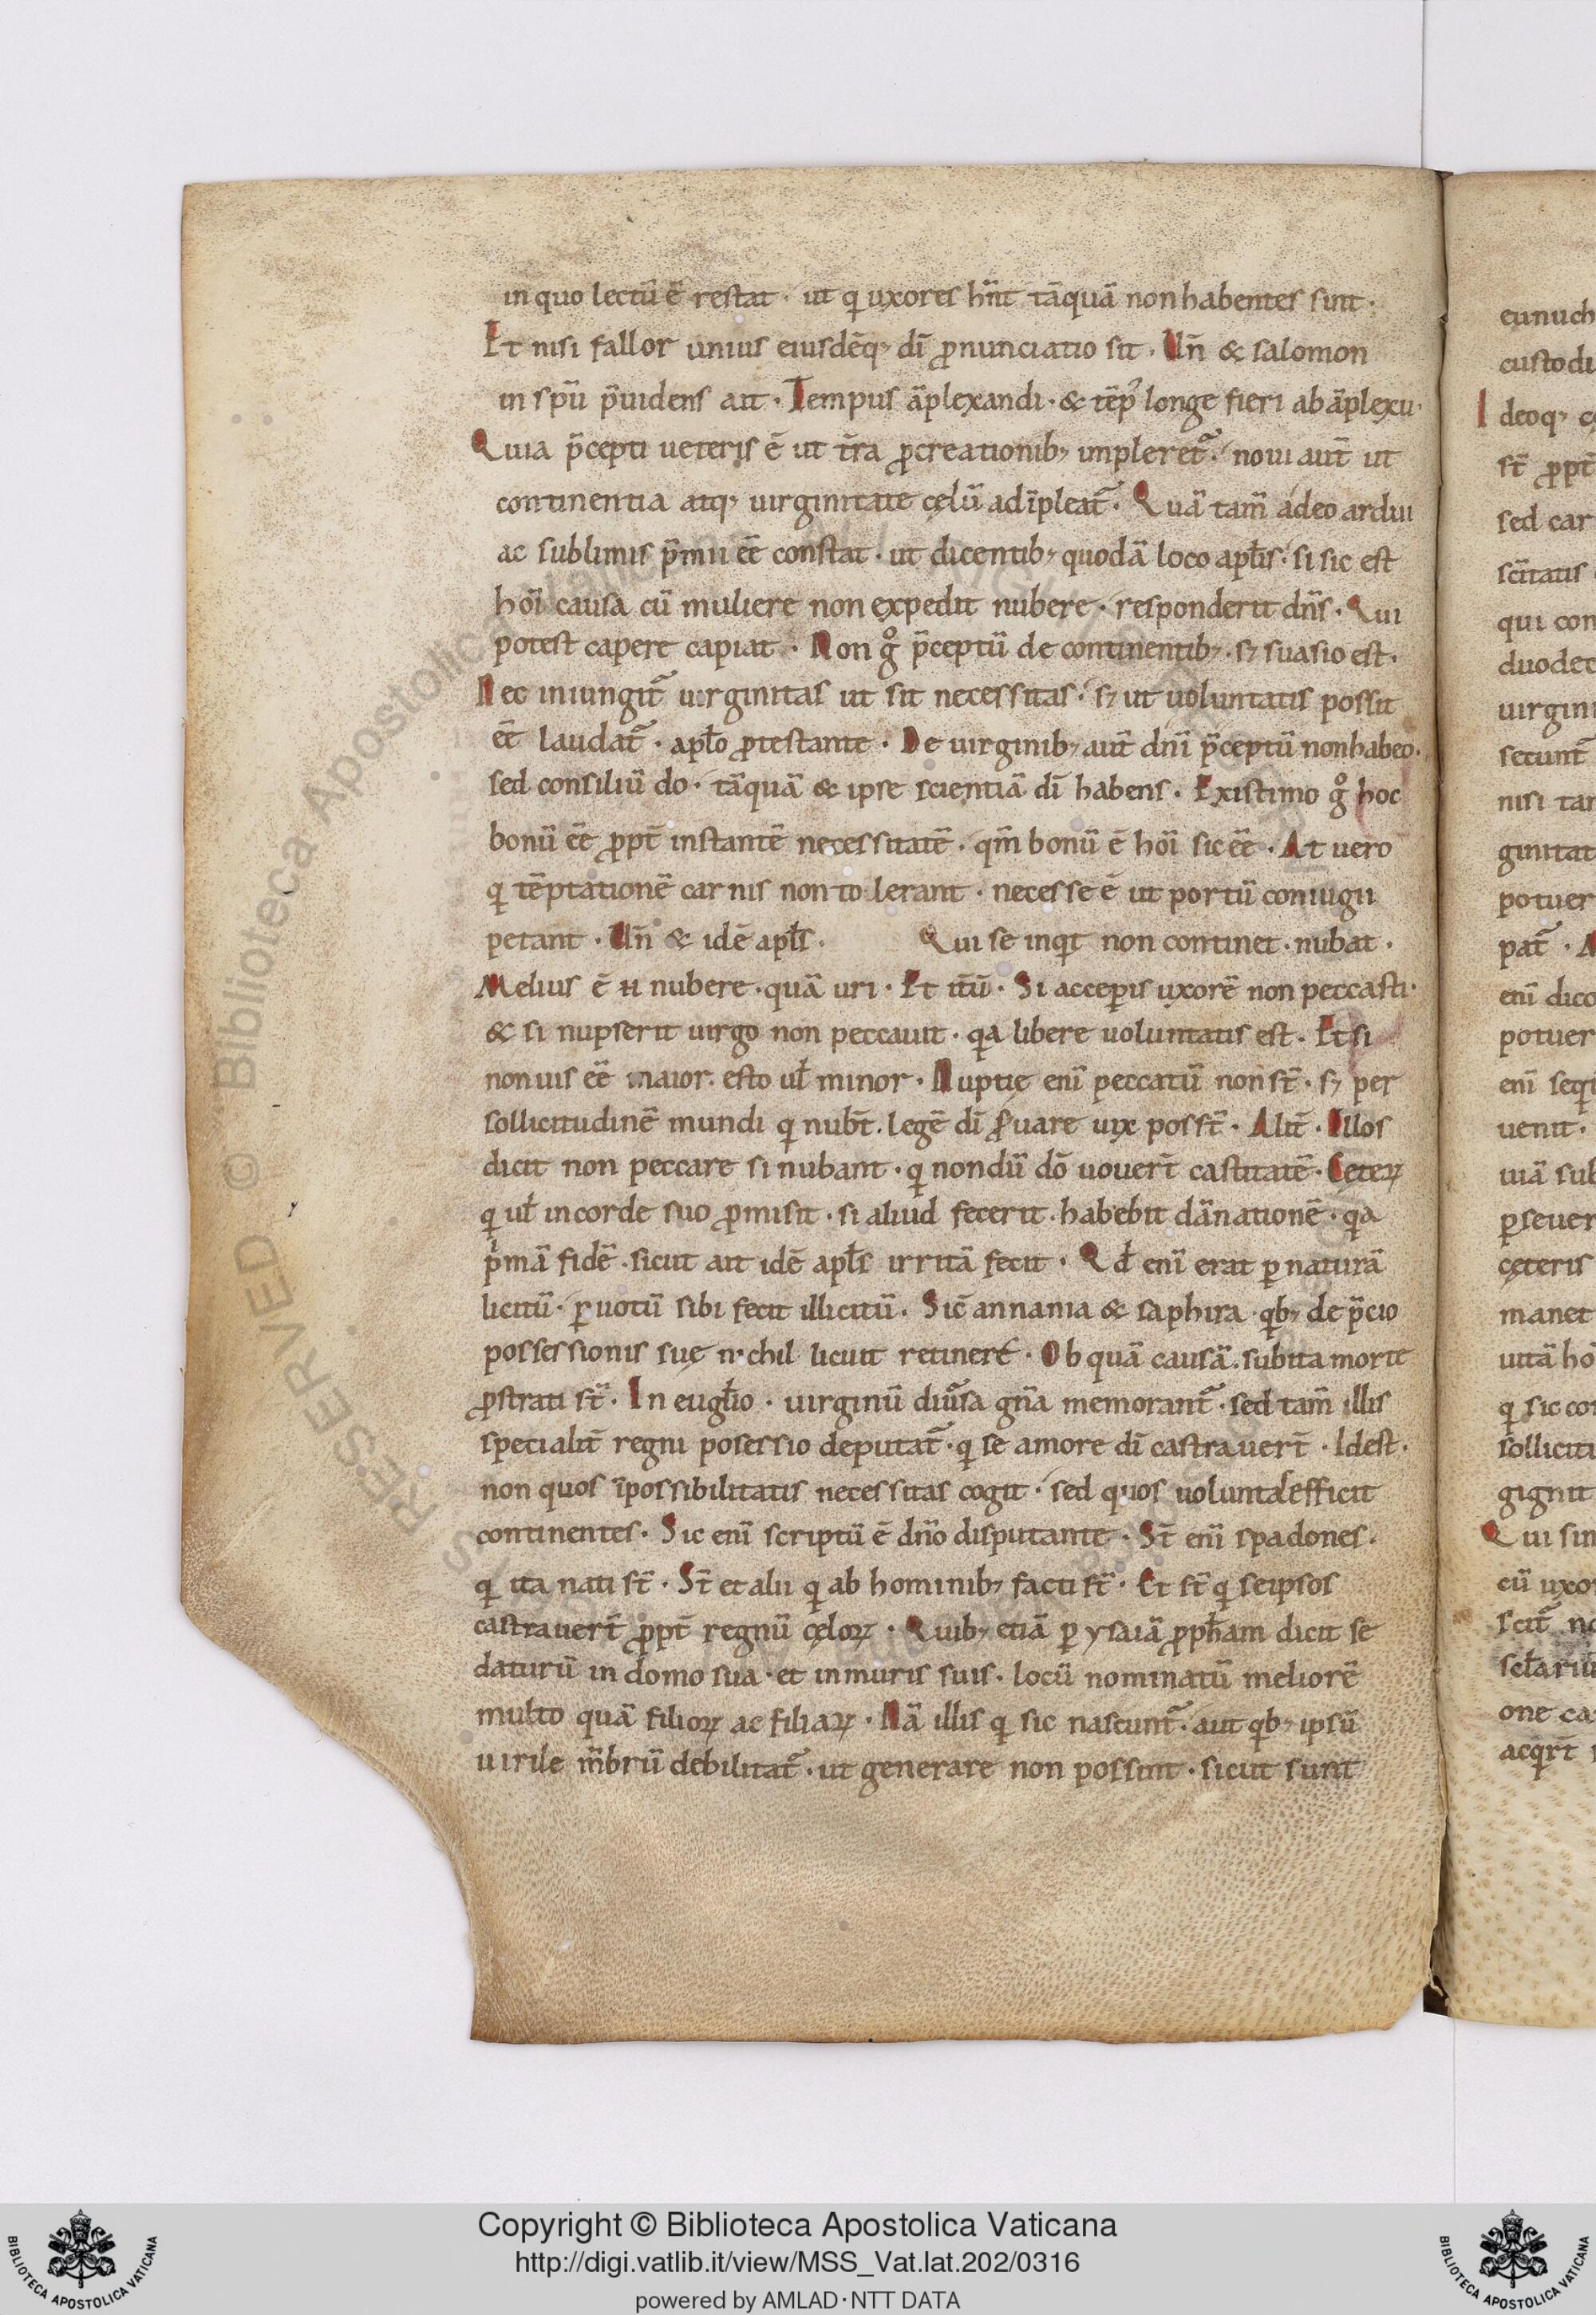 in quo lectũ ẽ restat · ut q uxores hñt tãquã non habentes sint ·
Et nisi fallor unius eiusdẽq; dĩ pronunciatio sit · Uñ & salomon
in spũ p̃uidens ait · Tempus ãplexandi · & tẽp᾽ longe fieri ab ãplexu ·
Quia p̃cepti ueteris ẽ ut t̃ra procreationib; impleret̃ · noui aut̃ ut
continentia atq; uirginitate cęlũ adĩpleat̃ · Quã tam̃ adeo ardui
ac sublimis p̃mii eẽ constat · ut dicentib; quodã loco aptis · si sic est
hoĩ causa cũ muliere non expedit nubere · responderit dñs · Qui
potest capere capiat · Non gͦ p̃ceptũ de continentib; · s; suasio est ·
Nec iniungit̃ uirginitas ut sit necessitas · s; ut uoluntatis possit
eẽ laudat̃ · apło protestante · De uirginib; aut̃ dñi p̃ceptũ non habeo ·
sed consiliũ do · tãquã & ipse scientiã dĩ habens · Existimo gͦ hoc
bonũ eẽ propt̃ instantẽ necessitatẽ · qm̃ bonũ ẽ hoĩ sic eẽ · At uero
q tẽptationẽ carnis non tolerant · necesse ẽ ut portũ coniugii
petant · Uñ & idẽ apłs · Qui se inqt non continet · nubat ·
Melius ẽ n nubere · quã uri · Et itũ · Si acceperis uxorẽ non peccasti ·
& si nupserit uirgo non peccauit · qa libere uoluntatis est · Et si
non uis eẽ maior · esto uł minor · Nuptię enĩ peccatũ non st̃ · s; per
sollicitudinẽ mundi q nubt̃ · legẽ dĩ seruare uix posst̃ · Alit̃ · Illos
dicit non peccare si nubant · q nondũ dõ uouert̃ castitatẽ · Ceteꝝ
q uł in corde suo promisit · si aliud fecerit · habebit dãnationẽ · qa
pmã fidẽ · sicut ait idẽ apłs irritã fecit · Qd enĩ erat ꝑ naturã
licitũ · ꝑ uotũ sibi fecit illicitũ · Sic̃ annania & saphira · qb; de p̃cio
possessionis suę nichil licuit retinere · Ob quã causã · subita morte
prostrati st̃ · In eugłio · uirginũ diũsa gña memorant̃ · sed tam̃ illis
specialit̃ regni posessio deputat̃ · q se amore dĩ castrauert̃ · Idest ·
non quos ĩpossibilitatis necessitas cogit · sed quos uoluntas efficit
continentes · Sic enĩ scriptũ ẽ dño disputante · St̃ enĩ spadones ·
q ita nati st̃ · St̃ et alii q ab hominib; facti st̃ · Et st̃ q seipsos
castrauert̃ propt̃ regnũ cęloꝝ · Quib; etiã ꝑ ysaiã propħam dicit se
daturũ in domo sua · et in muris suis · locũ nominatũ meliorẽ
multo quã filioꝝ ac filiaꝝ · Nã illis q sic nascunt̃ · aut qb; ipsũ
uirile m̃brũ debilitat̃ · ut generare non possint · sicut sunt
eunuch
custodi
Ideoq; c
st̃ propt̃
sed car
scĩtatis
qui con
duodec
uirgini
secunt̃
nisi tan
ginitat
potuer
pat̃ · A
enĩ dico
potuer
enĩ seq
uenit ·
uiã sub
ꝑseuer
cęteris
manet
uitã ho
q sic con
sollicitu
gignit
Qui sin
cũ uxo
scit̃ no
sclariu
one ca
acqrt̃
Copyright © Biblioteca Apostolica Vaticana
http://digi.vatlib.it/view/MSS_Vat.lat.202/0316
powered by AMLAD·NTT DATA
BIBLIOTECA APOSTOLICA VATICANA
BIBLIOTECA APOSTOLICA VATICANA